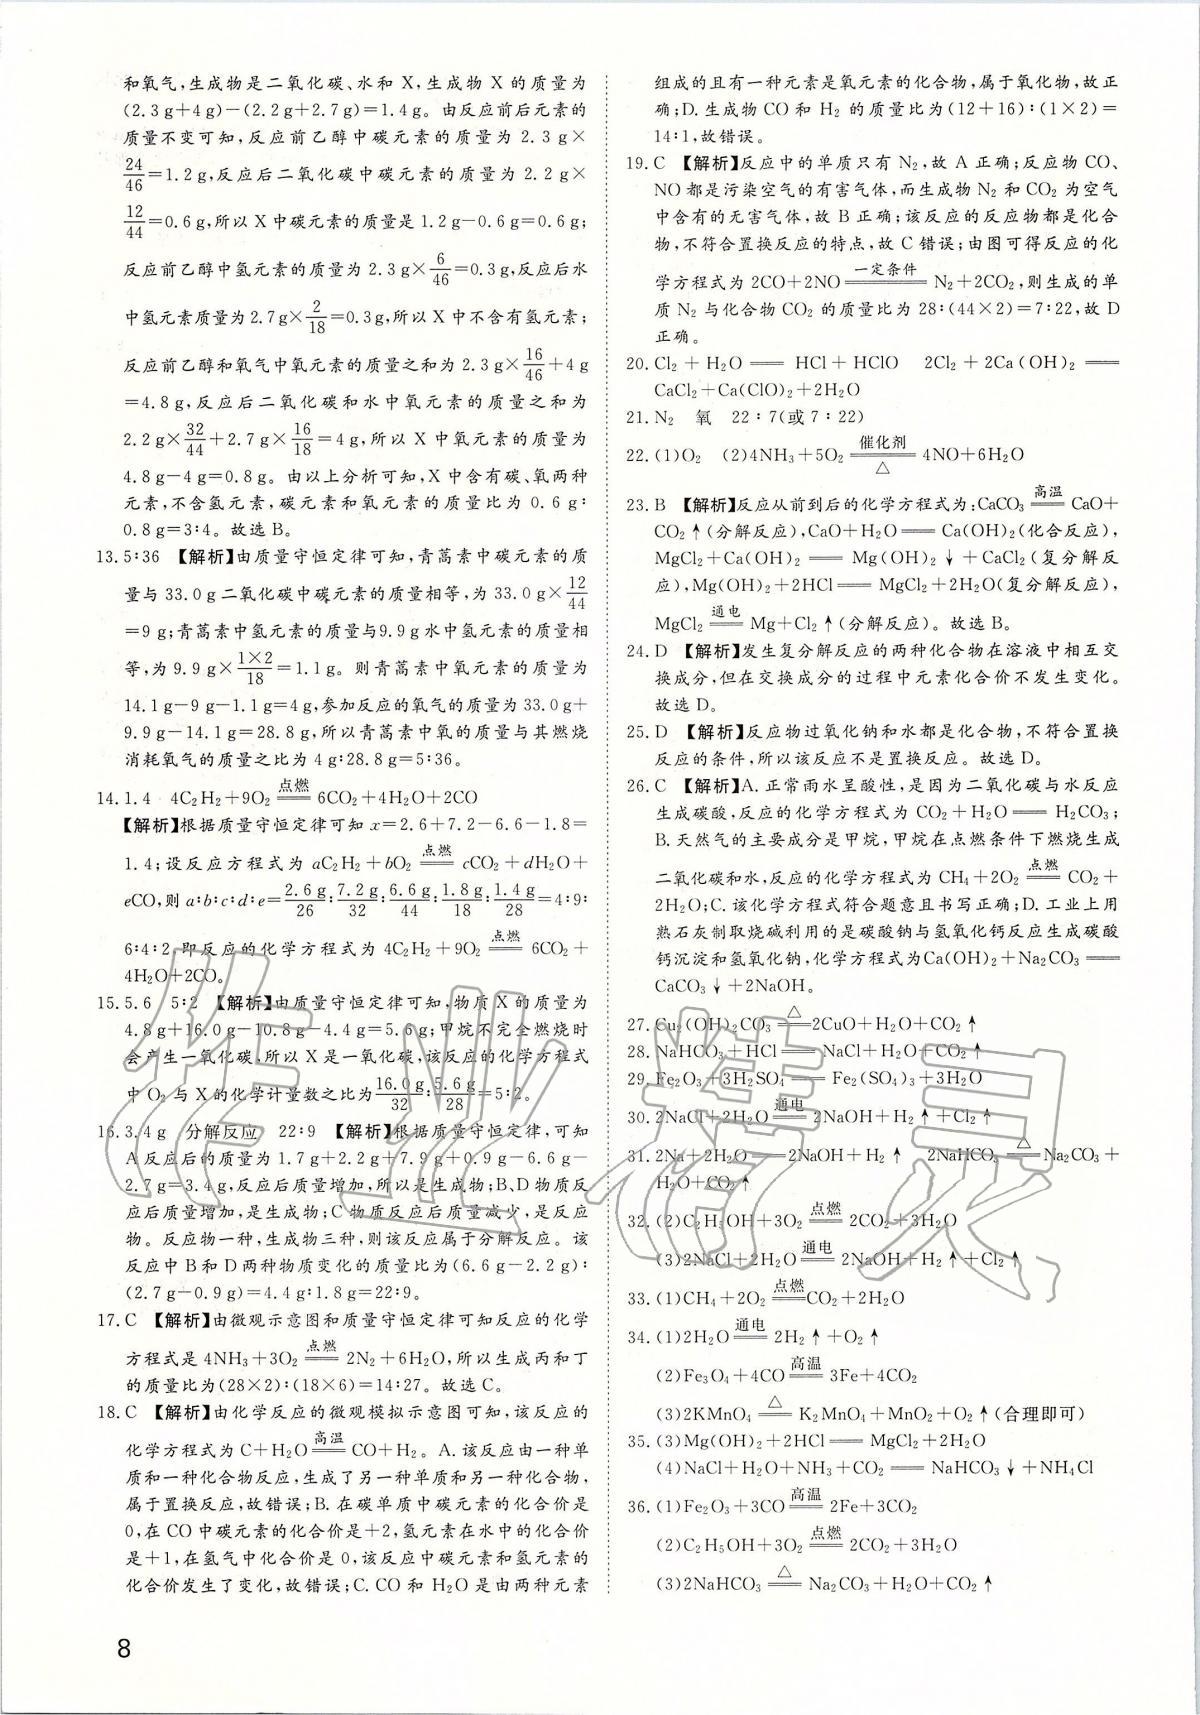 和氧气,生成物是二氧化碳、水和 X,生成物 X 的质量为
(2.3 g+4 g)-(2.2 g+2.7 g)=1.4 g。由反应前后元素的
质量不变可知,反应前乙醇中碳元素的质量为 2.3 g×
24/46=1.2 g,反应后二氧化碳中碳元素的质量为 2.2 g×
12/44=0.6 g,所以 X 中碳元素的质量是 1.2 g-0.6 g=0.6 g;
反应前乙醇中氢元素的质量为 2.3 g×6/46=0.3 g,反应后水
中氢元素质量为 2.7 g×2/18=0.3 g,所以 X 中不含有氢元素;
反应前乙醇和氧气中氧元素的质量之和为 2.3 g×16/46+4 g
=4.8 g,反应后二氧化碳和水中氧元素的质量之和为
2.2 g×32/44+2.7 g×16/18=4 g,所以 X 中氧元素的质量为
4.8 g-4 g=0.8 g。由以上分析可知,X 中含有碳、氧两种
元素,不含氢元素,碳元素和氧元素的质量比为 0.6 g∶
0.8 g=3∶4。故选 B。
13. 5∶36 【解析】由质量守恒定律可知,青蒿素中碳元素的质
量与 33.0 g 二氧化碳中碳元素的质量相等,为 33.0 g×12/44
=9 g;青蒿素中氢元素的质量与9.9 g水中氢元素的质量相
等,为 9.9 g×1×2/18=1.1 g。则青蒿素中氧元素的质量为
14.1 g-9 g-1.1 g=4 g,参加反应的氧气的质量为 33.0 g+
9.9 g-14.1 g=28.8 g,所以青蒿素中氧的质量与其燃烧
消耗氧气的质量之比为 4 g∶28.8 g=5∶36。
14. 1.4 4C₂H₂+9O₂ 点燃═ 6CO₂+4H₂O+2CO
【解析】根据质量守恒定律可知 x=2.6+7.2-6.6-1.8=
1.4;设反应方程式为 aC₂H₂+bO₂ 点燃═ cCO₂+dH₂O+
eCO,则 a∶b∶c∶d∶e=2.6 g/26∶7.2 g/32∶6.6 g/44∶1.8 g/18∶1.4 g/28=4∶9∶
6∶4∶2,即反应的化学方程式为 4C₂H₂+9O₂ 点燃═ 6CO₂+
4H₂O+2CO。
15. 5.6 5∶2 【解析】由质量守恒定律可知,物质 X 的质量为
4.8 g+16.0 g-10.8 g-4.4 g=5.6 g;甲烷不完全燃烧时
会产生一氧化碳,所以 X 是一氧化碳,该反应的化学方程式
中 O₂ 与 X 的化学计量数之比为16.0 g/32∶5.6 g/28=5∶2。
16. 3.4 g 分解反应 22∶9 【解析】根据质量守恒定律,可知
A 反应后的质量为 1.7 g+2.2 g+7.9 g+0.9 g-6.6 g-
2.7 g=3.4 g,反应后质量增加,所以是生成物;B、D 物质反
应后质量增加,是生成物;C 物质反应后质量减少,是反应
物。反应物一种,生成物三种,则该反应属于分解反应。该
反应中 B 和 D 两种物质变化的质量比为(6.6 g-2.2 g)∶
(2.7 g-0.9 g)=4.4 g∶1.8 g=22∶9。
17. C 【解析】由微观示意图和质量守恒定律可知反应的化学
方程式是 4NH₃+3O₂ 点燃═ 2N₂+6H₂O,所以生成丙和丁
的质量比为(28×2)∶(18×6)=14∶27。故选 C。
18. C 【解析】由化学反应的微观模拟示意图可知,该反应的
化学方程式为 C+H₂O 高温═ CO+H₂。A. 该反应由一种单
质和一种化合物反应,生成了另一种单质和另一种化合物,
属于置换反应,故错误;B. 在碳单质中碳元素的化合价是
0,在 CO 中碳元素的化合价是+2,氢元素在水中的化合价
是+1,在氢气中化合价是 0,该反应中碳元素和氢元素的
化合价发生了变化,故错误;C. CO 和 H₂O 是由两种元素
组成的且有一种元素是氧元素的化合物,属于氧化物,故正
确;D. 生成物 CO 和 H₂ 的质量比为(12+16)∶(1×2)=
14∶1,故错误。
19. C 【解析】反应中的单质只有 N₂,故 A 正确;反应物 CO、
NO 都是污染空气的有害气体,而生成物 N₂ 和 CO₂ 为空气
中含有的无害气体,故 B 正确;该反应的反应物都是化合
物,不符合置换反应的特点,故 C 错误;由图可得反应的化
学方程式为 2CO+2NO 一定条件═ N₂+2CO₂,则生成的单
质 N₂ 与化合物 CO₂ 的质量比为 28∶(44×2)=7∶22,故 D
正确。
20. Cl₂+H₂O ═ HCl+HClO 2Cl₂+2Ca(OH)₂ ═
CaCl₂+Ca(ClO)₂+2H₂O
21. N₂ 氧 22∶7(或 7∶22)
22. (1)O₂ (2)4NH₃+5O₂ 催化剂═△ 4NO+6H₂O
23. B 【解析】反应从前到后的化学方程式为:CaCO₃ 高温═ CaO+
CO₂↑(分解反应),CaO+H₂O ═ Ca(OH)₂(化合反应),
MgCl₂+Ca(OH)₂ ═ Mg(OH)₂↓+CaCl₂(复分解反
应),Mg(OH)₂+2HCl ═ MgCl₂+2H₂O(复分解反应),
MgCl₂ 通电═ Mg+Cl₂↑(分解反应)。故选 B。
24. D 【解析】发生复分解反应的两种化合物在溶液中相互交
换成分,但在交换成分的过程中元素化合价不发生变化。
故选 D。
25. D 【解析】反应物过氧化钠和水都是化合物,不符合置换
反应的条件,所以该反应不是置换反应。故选 D。
26. C 【解析】A. 正常雨水呈酸性,是因为二氧化碳与水反应
生成碳酸,反应的化学方程式为 CO₂+H₂O ═ H₂CO₃;
B. 天然气的主要成分是甲烷,甲烷在点燃条件下燃烧生成
二氧化碳和水,反应的化学方程式为 CH₄+2O₂ 点燃═ CO₂+
2H₂O;C. 该化学方程式符合题意且书写正确;D. 工业上用
熟石灰制取烧碱利用的是碳酸钠与氢氧化钙反应生成碳酸
钙沉淀和氢氧化钠,化学方程式为Ca(OH)₂+Na₂CO₃ ═
CaCO₃↓+2NaOH。
27. Cu₂(OH)₂CO₃ △═ 2CuO+H₂O+CO₂↑
28. NaHCO₃+HCl ═ NaCl+H₂O+CO₂↑
29. Fe₂O₃+3H₂SO₄ ═ Fe₂(SO₄)₃+3H₂O
30. 2NaCl+2H₂O 通电═ 2NaOH+H₂↑+Cl₂↑
31. 2Na+2H₂O ═ 2NaOH+H₂↑ 2NaHCO₃ △═ Na₂CO₃+
H₂O+CO₂↑
32. (2)C₂H₅OH+3O₂ 点燃═ 2CO₂+3H₂O
(3)2NaCl+2H₂O 通电═ 2NaOH+H₂↑+Cl₂↑
33. (1)CH₄+2O₂ 点燃═ CO₂+2H₂O
34. (1)2H₂O 通电═ 2H₂↑+O₂↑
(2)Fe₃O₄+4CO 高温═ 3Fe+4CO₂
(3)2KMnO₄ △═ K₂MnO₄+MnO₂+O₂↑(合理即可)
35. (3)Mg(OH)₂+2HCl ═ MgCl₂+2H₂O
(4)NaCl+H₂O+NH₃+CO₂ ═ NaHCO₃↓+NH₄Cl
36. (1)Fe₂O₃+3CO 高温═ 2Fe+3CO₂
(2)C₂H₅OH+3O₂ 点燃═ 2CO₂+3H₂O
(3)2NaHCO₃ △═ Na₂CO₃+H₂O+CO₂↑
8
作业精灵